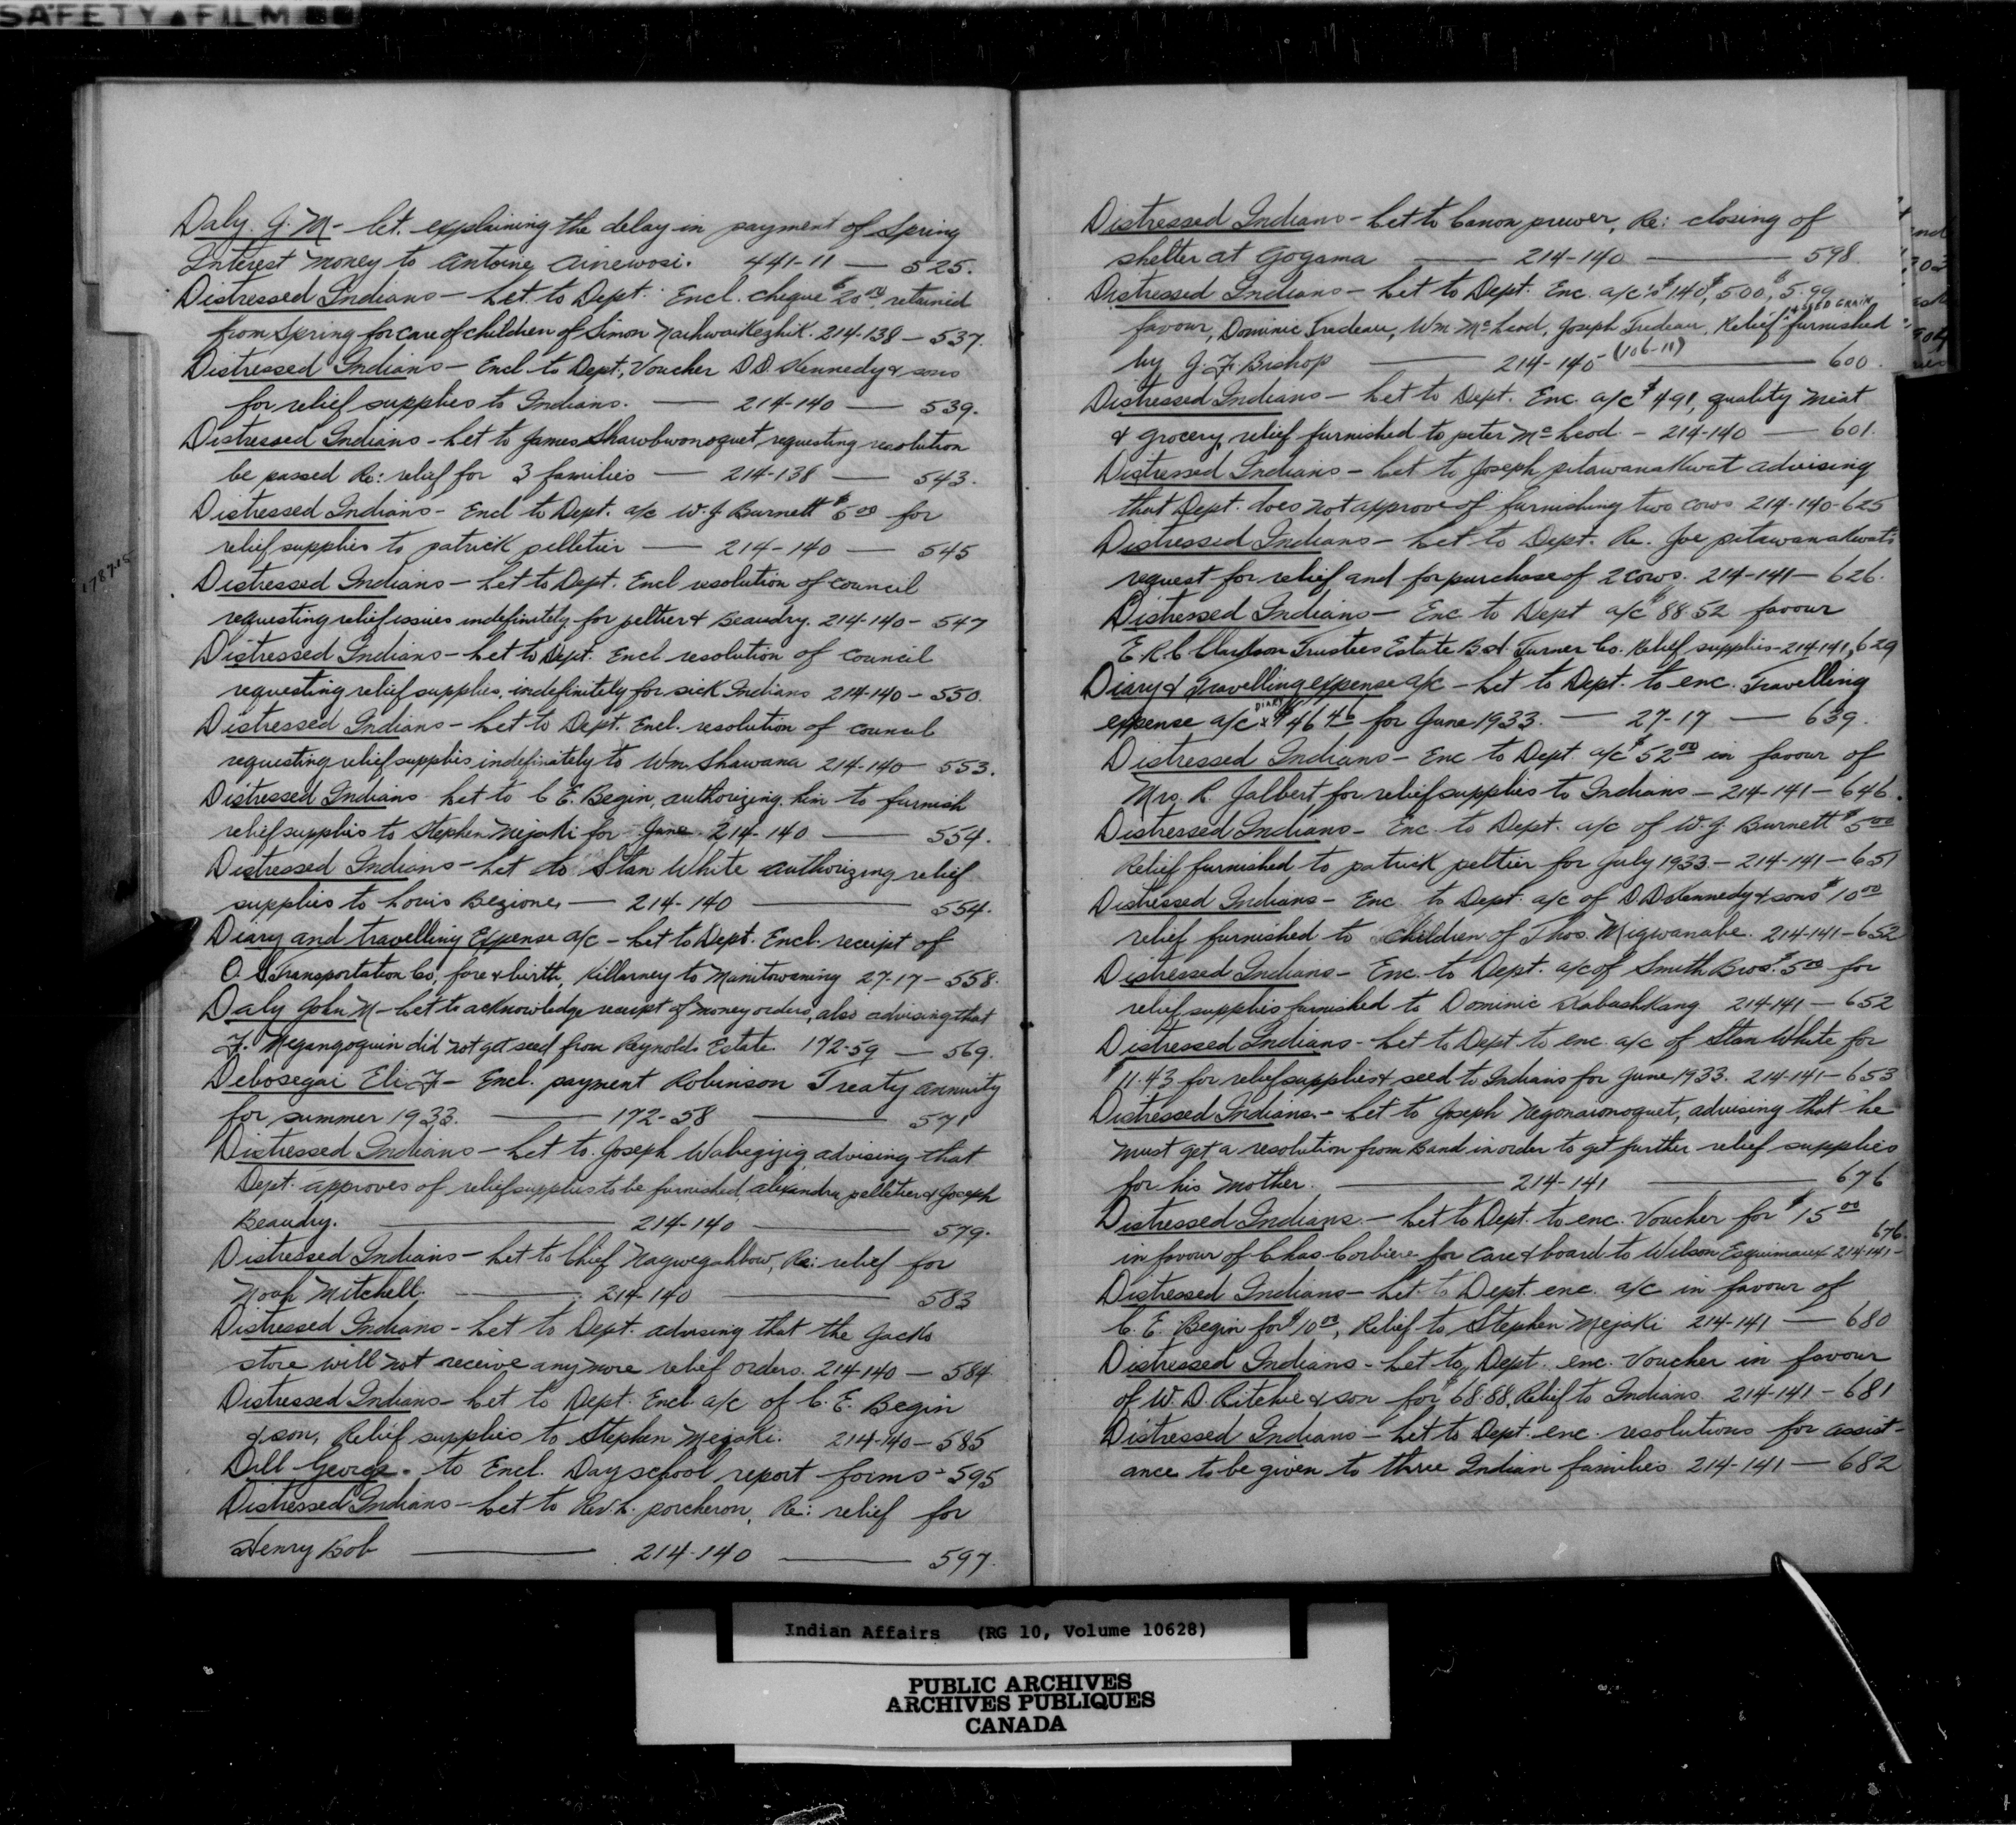 SAFETY FILM
Daly. J. M - let. explaining the delay in payment of Spring
Interest money to Antoine Ainewosi. 441-11 — 525.
Distressed Indians — Let. to Dept. Encl. cheque $20.00 retained
from Spring for care of children of Simon Nachwaikezhik. 214-138 — 537.
Distressed Indians — Encl to Dept, Voucher D.D. Kennedy & sons
for relief supplies to Indians. — 214-140 — 539.
Distressed Indians - Let to James Shawbwonoquet, requesting resolution
be passed Re: relief for 3 families — 214-138 — 543.
Distressed Indians - Encl to Dept. a/c W. J Burnett $5.00 for
relief supplies to patrick pelletier — 214-140 — 545
Distressed Indians — Let to Dept. Encl resolution of council
requesting relief issues indefinitely for peltier & Beaudry. 214-140 - 547
Distressed Indians — Let to Dept. Encl resolution of council
requesting relief supplies, indefinitely for sick Indians 214-140 - 550.
Distressed Indians — Let to Dept. Encl. resolution of council
requesting relief supplies indefinitely to Wm. Shawana 214-140 — 553.
Distressed Indians Let to C E. Begin, authorizing him to furnish
relief supplies to Stephen Mejaki for June 214-140 — 554.
Distressed Indians — Let to Stan White authorizing relief
supplies to Louis Bezione, — 214-140 — 554.
Diary and travelling Expense a/c - Let to Dept. Encl. receipt of
O. S. Transportation Co, fare & birth, Killarney to Manitowaning 27-17 - 558.
Daly John M - Let to acknowledge receipt of money orders, also advising that
F. Megangoguin did not get seed from Reynolds Estate. 172-59 — 569.
Debosegai Eli J - Encl. payment Robinson Treaty annuity
for summer 1933. — 172-58 — 571
Distressed Indians — Let to. Joseph Wabegijig advising that
Dept. approves of relief supplies to be furnished, alexandra pelletier & Joseph
Beaudry. — 214-140 — 579.
Distressed Indians — Let to Chief Nagwegahbow, Re: relief for
Noah Mitchell. — 214-140 — 583
Distressed Indians - Let to Dept. advising that the Jacks
store will not receive any more relief orders. 214-140 — 584
Distressed Indians - Let to Dept. Encl. a/c of C. E. Begin
& son, Relief supplies to Stephen Mejaki. 214-140 - 585
Dill George. to Encl. Day school report forms - 595
Distressed Indians — Let to Rev. L. porcheron, Re: relief for
Henry Bob — 214-140 — 597.
Distressed Indians - Let to Canon prewer, Re: closing of
shelter at Gogama — 214-140 — 598
Distressed Indians - Let to Dept. Enc. a/c's $1.40, $5.00, $5.99
favour, Dominic Trudeau, Wm McLeod, Joseph Trudeau, Relief & SEED GRAIN furnished
by J. F. Bishop — 214-145 (106-11) — 600.
Distressed Indians — Let to Dept. Enc. a/c $4.91, quality meat
& grocery, relief furnished to peter McLeod. - 214-140 — 601.
Distressed Indians - Let to Joseph pitawanakwat advising
that Dept. does not approve of furnishing two cows 214-140-625
Distressed Indians — Let to Dept. Re. Joe pitawanakwat's
request for relief and for purchase of 2 cows. 214-141 — 626.
Distressed Indians — Enc to Dept a/c $88.52 favour
E. R. C Clarkson Trustees Estate B & S. Turner Co. Relief supplies - 214-141, 629
Diary & Travelling expense a/c - Let to Dept. to enc. Travelling
expense a/c & DIARY $46.40 for June 1933. — 27-17 — 639.
Distressed Indians - Enc to Dept. a/c $52.00 in favour of
Mrs. R. Jalbert for relief supplies to Indians — 214-141 — 646.
Distressed Indians - Enc. to Dept. a/c of W. J. Burnett $5.00
Relief furnished to patrick peltier for July 1933 - 214-141 — 651
Distressed Indians - Enc. to Dept. a/c of D D Kennedy & sons $10.00
relief furnished to children of Thos. Migwanabe. 214-141 - 652
Distressed Indians - Enc. to Dept. a/c of Smith Bros. $5.00 for
relief supplies furnished to Dominic Kabashkang 214-141 — 652
Distressed Indians - Let to Dept to enc. a/c of Stan White for
$11.43 for relief supplies & seed to Indians for June 1933. 214-141 - 653
Distressed Indians. - Let to Joseph Negonaionoquet, advising that he
must get a resolution from Band in order to get further relief supplies
for his mother. — 214-141 — 676
Distressed Indians. - Let to Dept. to enc. Voucher for $15.00
in favour of Chas. Corbiere for care & board to Wilson Esquimaux 214-141 - 676.
Distressed Indians — Let to Dept. enc. a/c in favour of
C. E. Begin for $10.00, Relief to Stephen Mejaki 214-141 — 680
Distressed Indians - Let to Dept. enc. Voucher in favour
of W. D. Ritchie & son for $68.88, Relief to Indians. 214-141 - 681
Distressed Indians — Let to Dept. enc. resolutions for assist-
ance to be given to three Indian families 214-141 — 682
Indian Affairs (RG 10, Volume 10628)
PUBLIC ARCHIVES
ARCHIVES PUBLIQUES
CANADA